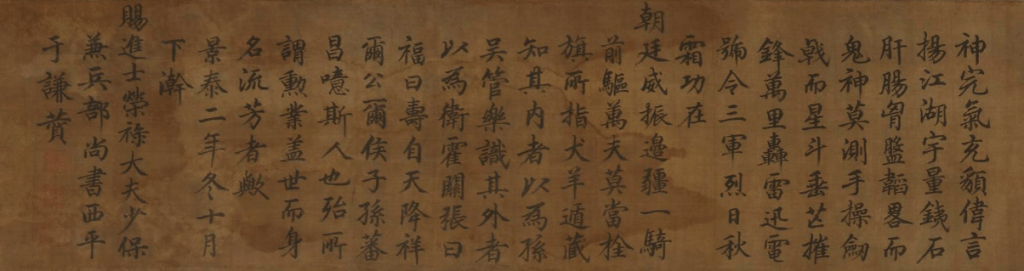 神完氣充貌偉言
揚江湖宇量鉄石
肝腸胷盤韜畧而
鬼神莫測手操劒
戟而星斗垂芒摧
鋒萬里轟雷迅電
號令三軍烈日秋
霜功在
朝廷威振邉疆一騎
前驅萬夫莫當栓
旗所指犬羊遁藏
知其内者以為孫
吴管樂識其外者
以為衛霍關張曰
福曰壽自天降祥
爾公爾侯子孫蕃
昌噫斯人也殆所
謂勲業盖世而身
名流芳者歟
景泰二年冬十月
下澣
賜進士榮祿大夫少保
兼兵部尚書西平
于謙賛